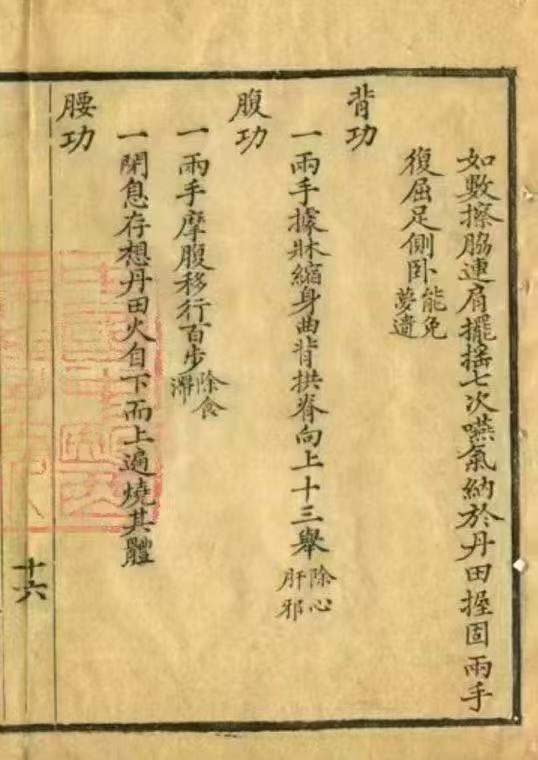 如數擦脇連肩擺搖七次嚥氣納於丹田握固兩手
復屈足側卧能免夢遺
背功
一兩手據牀縮身曲背拱脊向上十三舉除心肝邪
腹功
一兩手摩腹移行百步除食滯
一閉息存想丹田火自下而上遍燒其體
腰功
十六